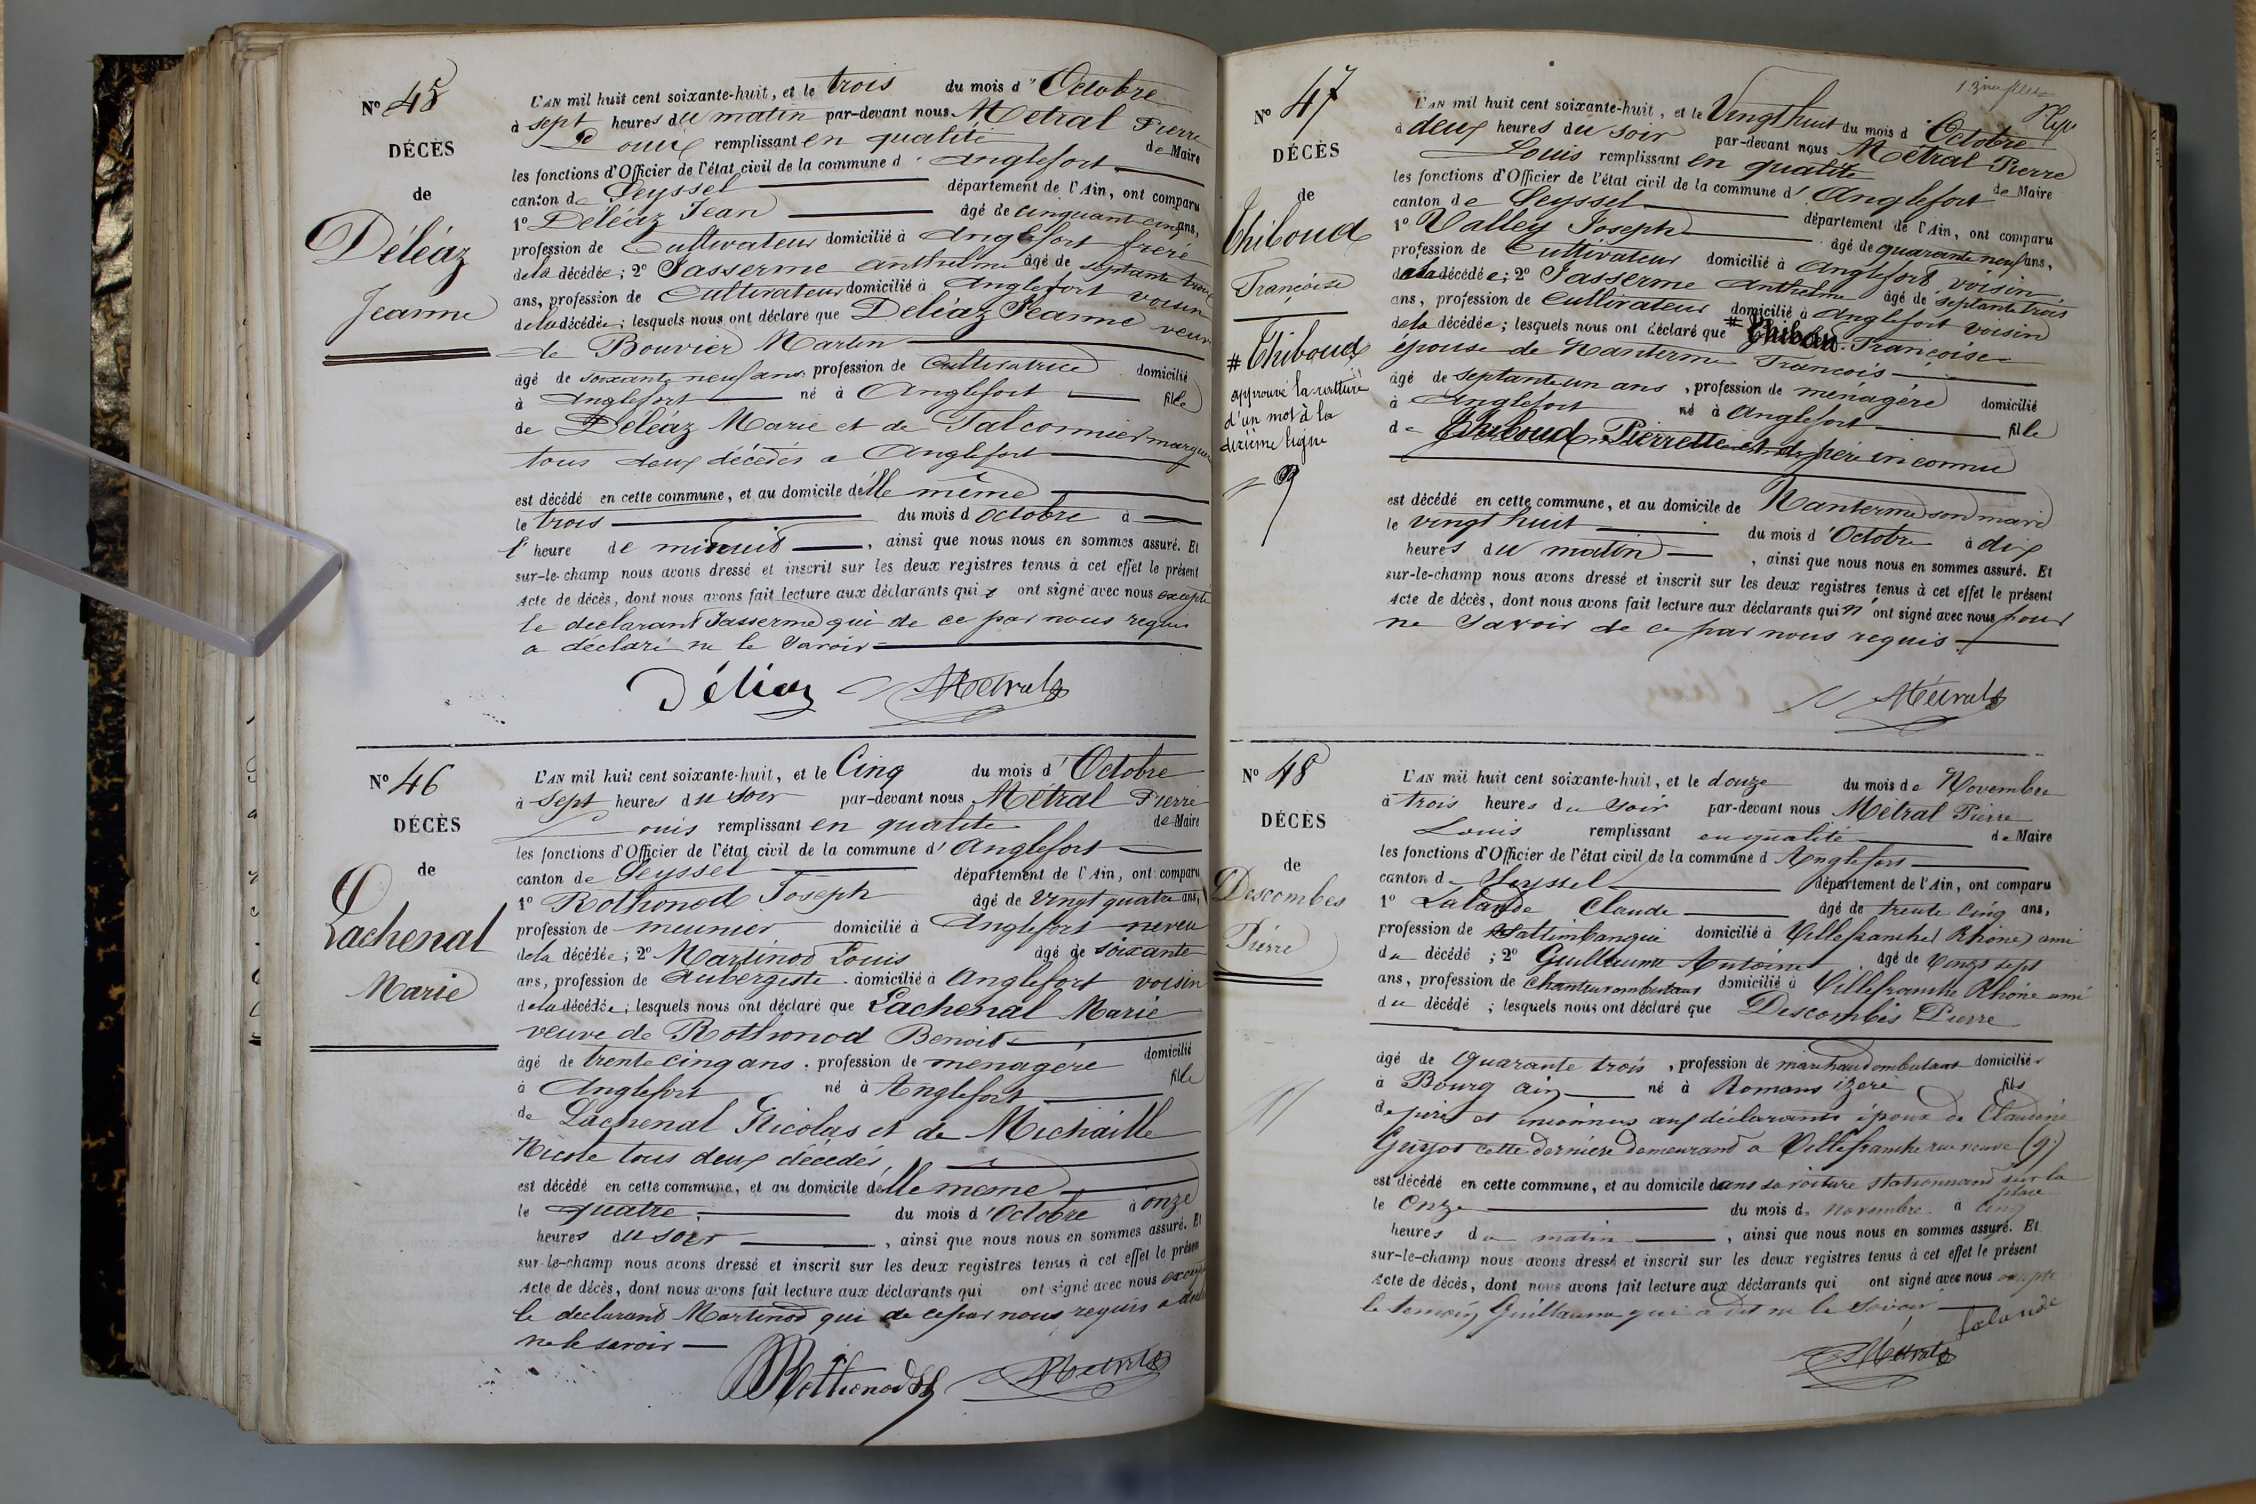 N° 45
DÉCÈS
de
Déléaz
Jeanne
L'AN mil huit cent soixante-huit, et le trois du mois d' Octobre
à sept heures du matin par-devant nous Métral Pierre
Louis remplissant en qualité de Maire
les fonctions d'Officier de l'état civil de la commune d' Anglefort
canton de Seyssel département de l'Ain, ont comparu
1° Déléaz Jean âgé de cinquant cinq ans,
profession de Cultivateur domicilié à Anglefort frère
de la décédée; 2° Jasserme Anthelme âgé de septante trois
ans, profession de Cultivateur domicilié à Anglefort voisin
de la décédée; lesquels nous ont déclaré que Deléaz Jeanne veuve
de Bouvier Martin
âgé de soixante neuf ans, profession de Cultivatrice domicilié
à Anglefort né à Anglefort fille
de Deléaz Marie et de Falconnier
tous deux décédés a Anglefort
est décédé en cette commune, et au domicile d'elle même
le trois du mois d'octobre à
l' heure de minuit, ainsi que nous nous en sommes assuré. Et
sur-le-champ nous avons dressé et inscrit sur les deux registres tenus à cet effet le présent
Acte de décès, dont nous avons fait lecture aux déclarants qui ont signé avec nous excepté
le déclarant Jasserme qui de ce par nous requis
a déclaré ne le savoir
Déléaz Métral
N° 46
DÉCÈS
de
Lachenal
Marie
L'AN mil huit cent soixante-huit, et le Cinq du mois d' Octobre
à Sept heures du soir par-devant nous Métral Pierre
Louis remplissant en qualité de Maire
les fonctions d'Officier de l'état civil de la commune d' Anglefort
canton de Seyssel département de l'Ain, ont comparu
1° Rothonod Joseph âgé de vingt quatre ans,
profession de meunier domicilié à Anglefort neveu
de la décédée; 2° Martinod Louis âgé de soixante
ans, profession de Aubergiste domicilié à Anglefort voisin
de la décédée; lesquels nous ont déclaré que Lachenal Marie
veuve de Rothonod Benoit
âgé de trente cinq ans, profession de ménagère domicilié
à Anglefort né à Anglefort fille
de Lachenal Nicolas et de Michaille
Nicole tous deux décédés,
est décédé en cette commune, et au domicile d'elle même
le quatre du mois d' Octobre à onze
heures du soir, ainsi que nous nous en sommes assuré. Et
sur-le-champ nous avons dressé et inscrit sur les deux registres tenus à cet effet le présent
Acte de décès, dont nous avons fait lecture aux déclarants qui ont signé avec nous excepté
le déclarant Martinod qui de ce par nous requis a
ne le savoir
Rothonod Métral
N° 47
DÉCÈS
de
Thiboud
Françoise
# Thiboud
approuvé la rature
d'un mot à la
dixième ligne
L'AN mil huit cent soixante-huit, et le Vingt huit du mois d' Octobre
à deux heures du soir par-devant nous Métral Pierre
Louis remplissant en qualité de Maire
les fonctions d'Officier de l'état civil de la commune d' Anglefort
canton de Seyssel département de l'Ain, ont comparu
1° Valley Joseph âgé de quarante neuf ans,
profession de Cultivateur domicilié à Anglefort voisin
de la décédée; 2° Jasserme Anthelme âgé de septante trois
ans, profession de Cultivateur domicilié à Anglefort voisin
de la décédée; lesquels nous ont déclaré que # Françoise
épouse de Nanterme François
âgé de septante un ans, profession de ménagère domicilié
à Anglefort né à Anglefort fille
de Thiboud Pierrette et de père inconnu
est décédé en cette commune, et au domicile de Nanterme son mari
le vingt huit du mois d' Octobre à dix
heures du matin, ainsi que nous nous en sommes assuré. Et
sur-le-champ nous avons dressé et inscrit sur les deux registres tenus à cet effet le présent
Acte de décès, dont nous avons fait lecture aux déclarants qui n'ont signé avec nous pour
ne savoir de ce par nous requis
Métral
N° 48
DÉCÈS
de
Descombes
Pierre
L'AN mil huit cent soixante-huit, et le douze du mois de Novembre
à trois heures du soir par-devant nous Métral Pierre
Louis remplissant en qualité de Maire
les fonctions d'Officier de l'état civil de la commune d'Anglefort
canton de Seyssel département de l'Ain, ont comparu
1° Lalande Claude âgé de trente cinq ans,
profession de saltimbanque domicilié à Villefranche (Rhône) ami
du décédé; 2° Guillaume Antoine âgé de vingt sept
ans, profession de Chanteur ambulant domicilié à Villefranche Rhône ami
du décédé; lesquels nous ont déclaré que Descombes Pierre
âgé de quarante trois, profession de marchand ambulant domicilié
à Bourg Ain né à Romans izere fils
de père et inconnus aux déclarants époux de Claudine
Guyot cette dernière demeurand a Villefranche rue neuve (9)
est décédé en cette commune, et au domicile dans sa voiture stationnand sur la
place
le onze du mois de novembre à cinq
heures du matin, ainsi que nous nous en sommes assuré. Et
sur-le-champ nous avons dressé et inscrit sur les deux registres tenus à cet effet le présent
Acte de décès, dont nous avons fait lecture aux déclarants qui ont signé avec nous excepté
le témoin Guillaume qui a dit ne le savoir
Lalande
Métral